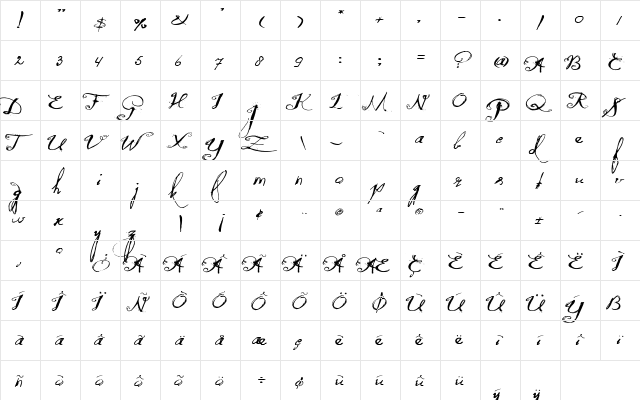 ! " $ % & ' ( ) * + , - . / 0 1
2 3 4 5 6 7 8 9 : ; = ? @ A B C
D E F G H I J K L M N O P Q R S
T U V W X Y Z \ _ ` a b c d e f
g h i j k l m n o p q r s t u v
w x y z | ¡ ¢ ¨ © ª ® ¯ ¨ ± ´ ·
¸ º ¿ À Á Â Ã Ä Å Æ Ç È É Ê Ë Ì
Í Î Ï Ñ Ò Ó Ô Õ Ö Ø Ù Ú Û Ü Ý ß
à á â ã ä å æ ç è é ê ë ì í î ï
ñ ò ó ô õ ö ÷ ø ù ú û ü ý ÿ